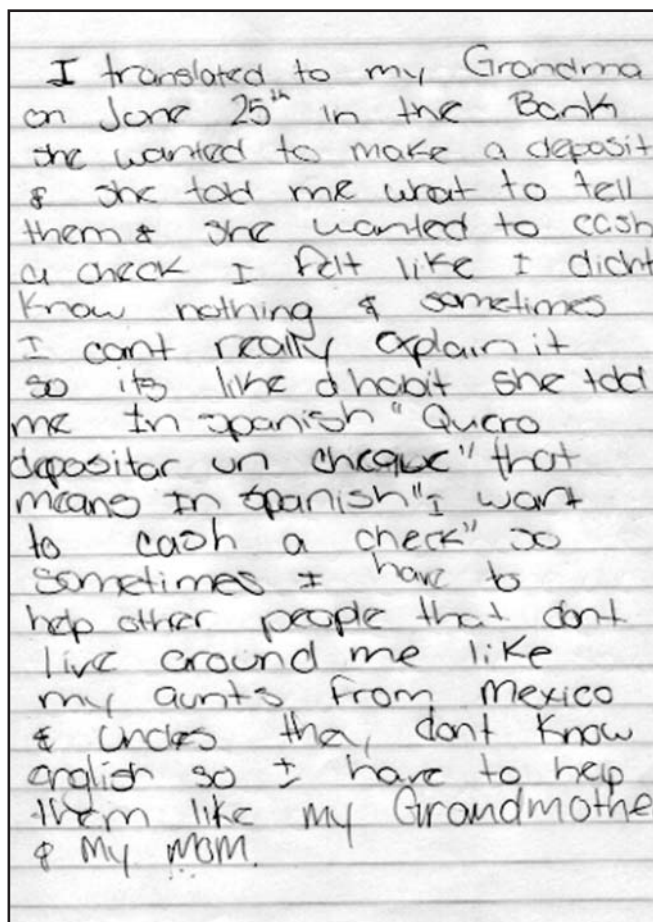 I translated to my Grandma
on June 25th in the Bank
she wanted to make a deposit
& she told me what to tell
them & she wanted to cash
a check I felt like I didn't
know nothing & sometimes
I cant really explain it
so its like a habit she told
me In spanish "Quero
depositar un cheque" that
means In spanish "I want
to cash a check" so
sometimes I have to
help other people that dont
live around me like
my aunts from mexico
& uncles they dont know
english so I have to help
them like my Grandmothe
& my mom.